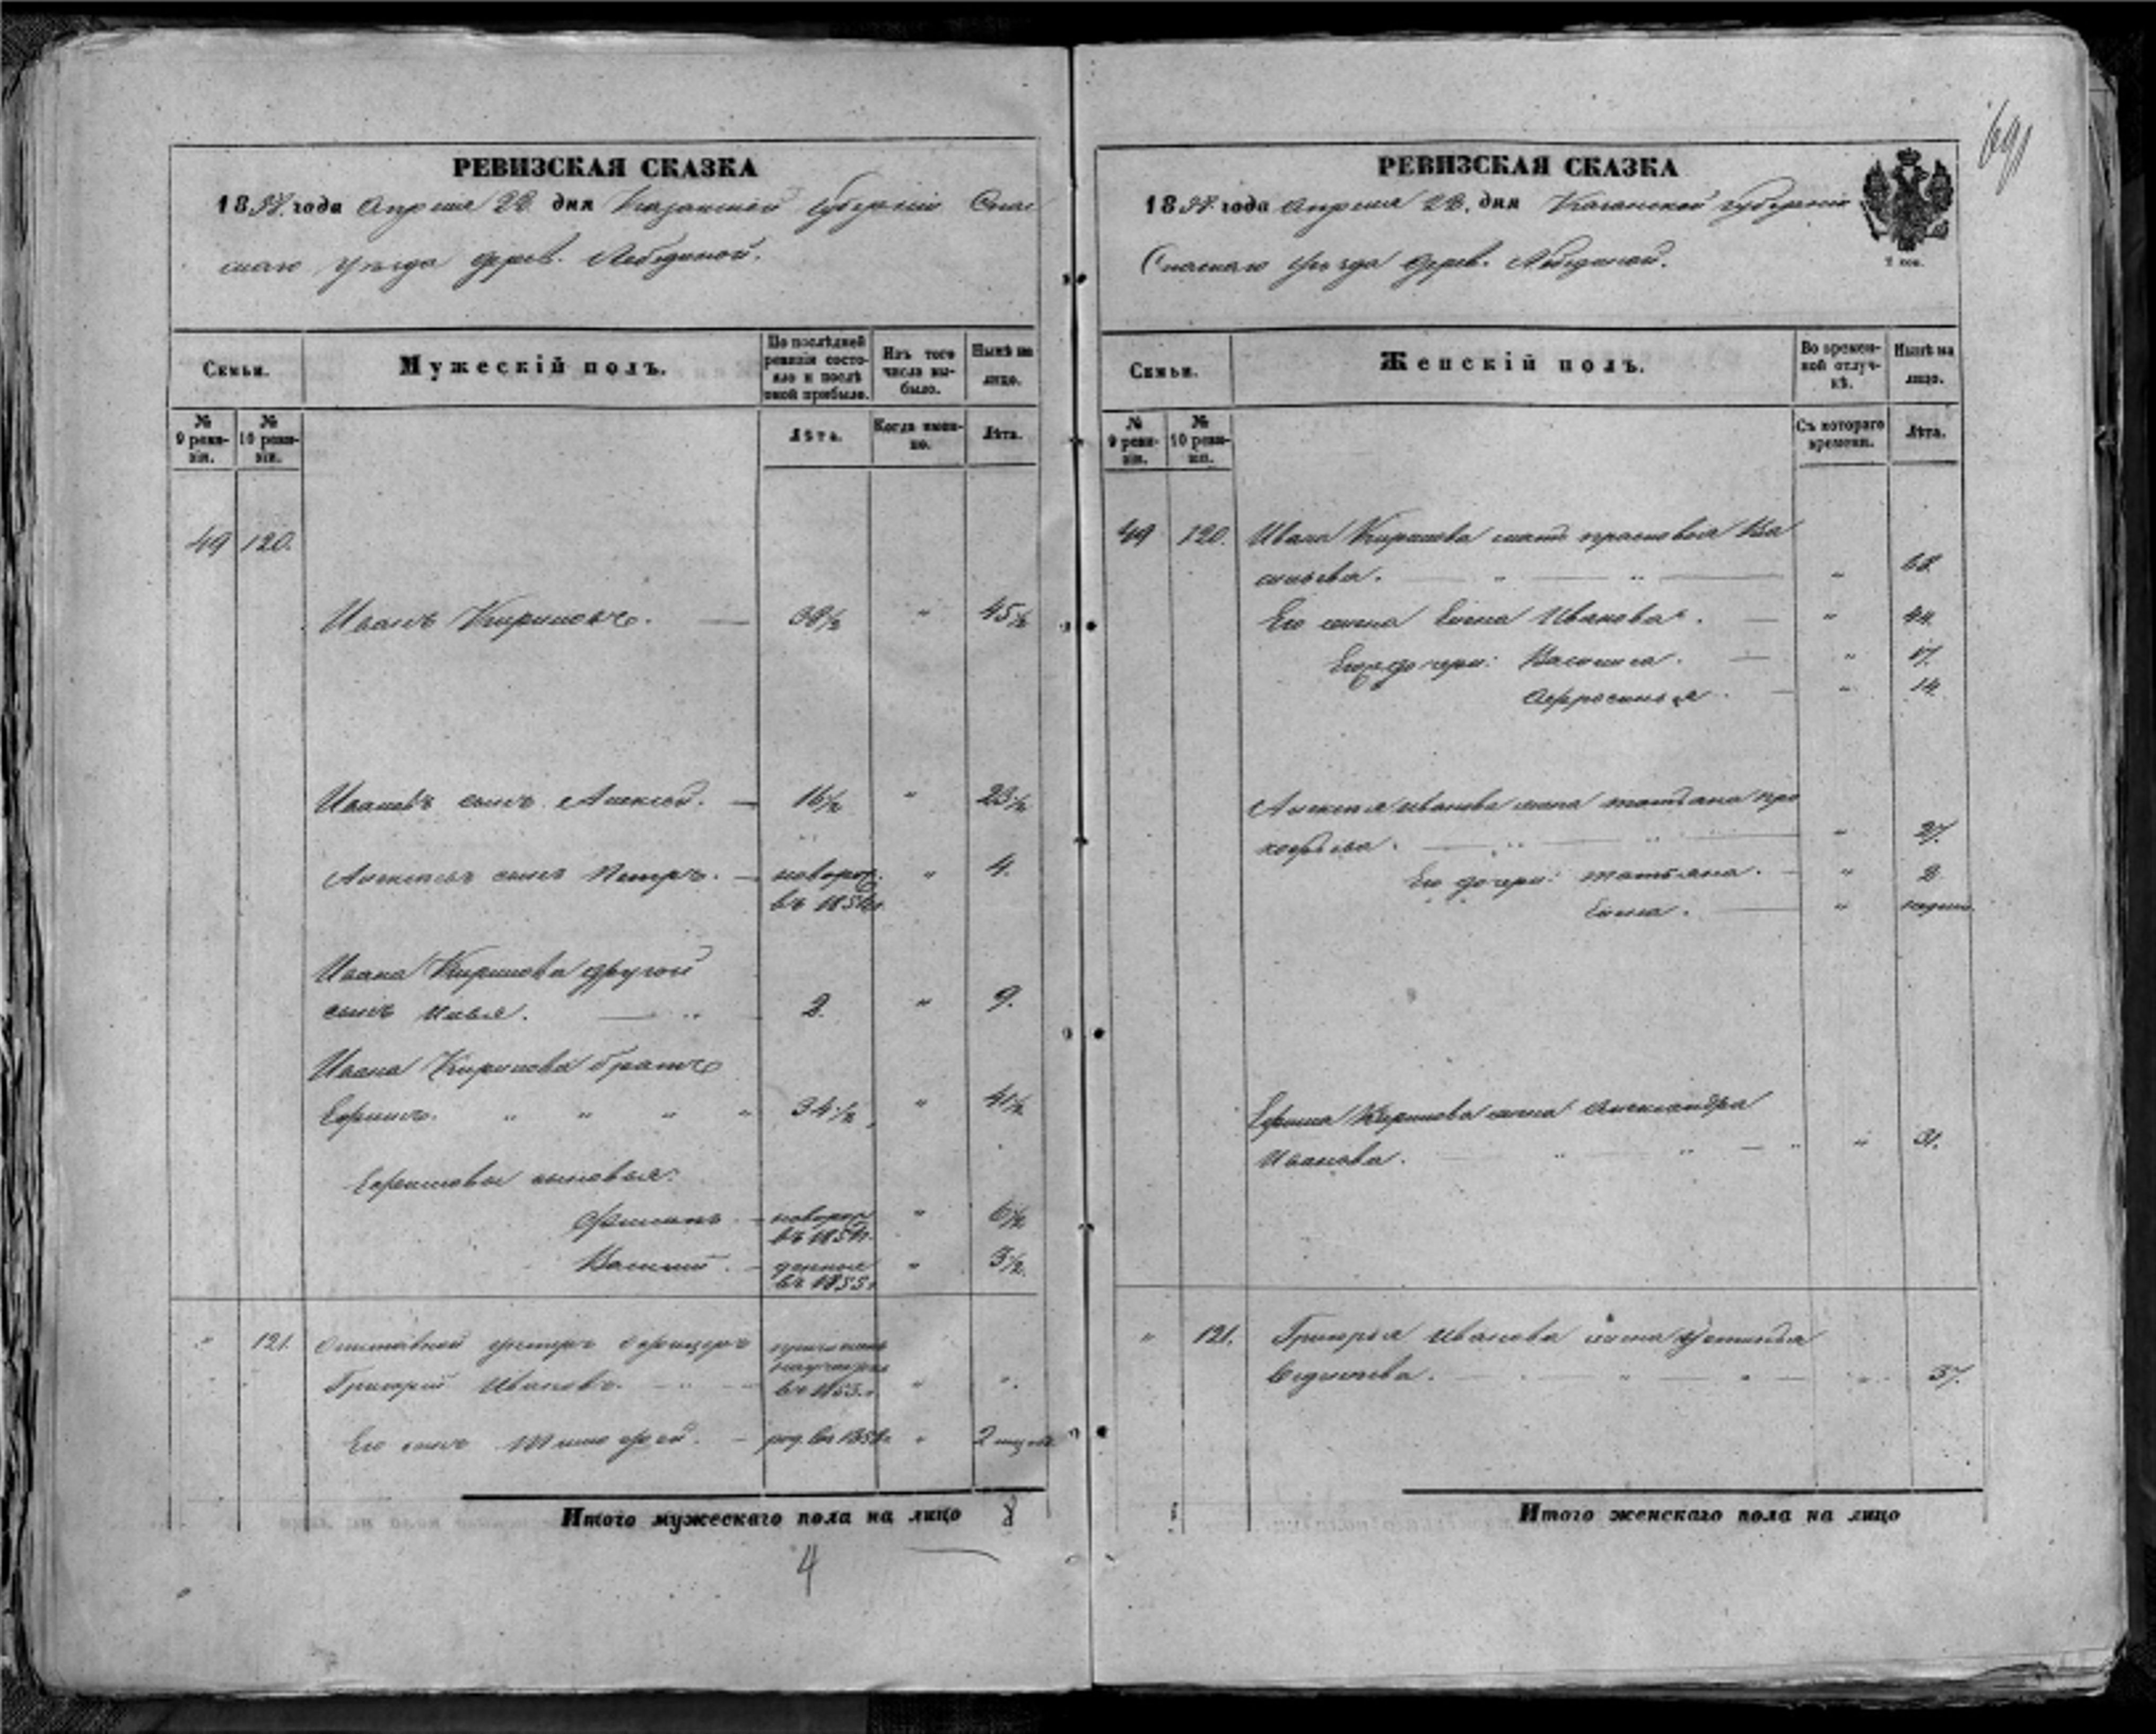 691
РЕВИЗСКАЯ СКАЗКА
1858 года Апреля 28 дня Казанской губернии Спас
скаго уезда дерев. Лебединой.
Семьи.
Мужескій полъ.
По послѣдней ревизіи состояло и послѣ оной прибыло.
Изъ того числа выбыло.
Нынѣ на лицо.
№ 9 ревизіи.
№ 10 ревизіи.
Лѣта.
Когда именно.
Лѣта.
49 120.
Иванъ Кириловъ. 38½ " 45½
Ивановъ сынъ Алексей. 16½ " 23½
Алексеевъ сынъ Петръ. новорож. " 4.
въ 1854г.
Ивана Кирилова другой
сынъ Илья. 2. " 9.
Ивана Кирилова братъ
Ефимъ. " " " " 34½ " 41½
Ефимовы сыновья:
новорож " 6½
Василий. денные " 3½
въ 1855г
" 121. Отставной унтеръ офицеръ
Григорий Ивановъ. въ 1853г. " ".
Его сынъ Тимофей. род. въ 1858г. " 2 мц
Итого мужескаго пола на лицо 8
4
РЕВИЗСКАЯ СКАЗКА
1858 года Апреля 28. дня Казанской губернии
Спаскаго уезда дерев. Лебединой.
Семьи.
Женскій полъ.
Во временной отлучкѣ.
Нынѣ на лицо.
№ 9 ревизіи.
№ 10 ревизіи.
Съ котораго времени.
Лѣта.
49 120. Ивана Кирилова мать Прасковья Ва
сильева. " 68.
Его жена Елена Иванова. " 44.
Его дочери: Василиса. " 17.
Афросинья. " 14.
Алексея Иванова жена Татьяна Про
кофьева. " 27.
Его дочери: Татьяна. " 2
Елена. "
Ефима Кирилова жена Александра
Иванова. " 31.
" 121. Григорья Иванова жена Устинья
37.
Итого женскаго пола на лицо